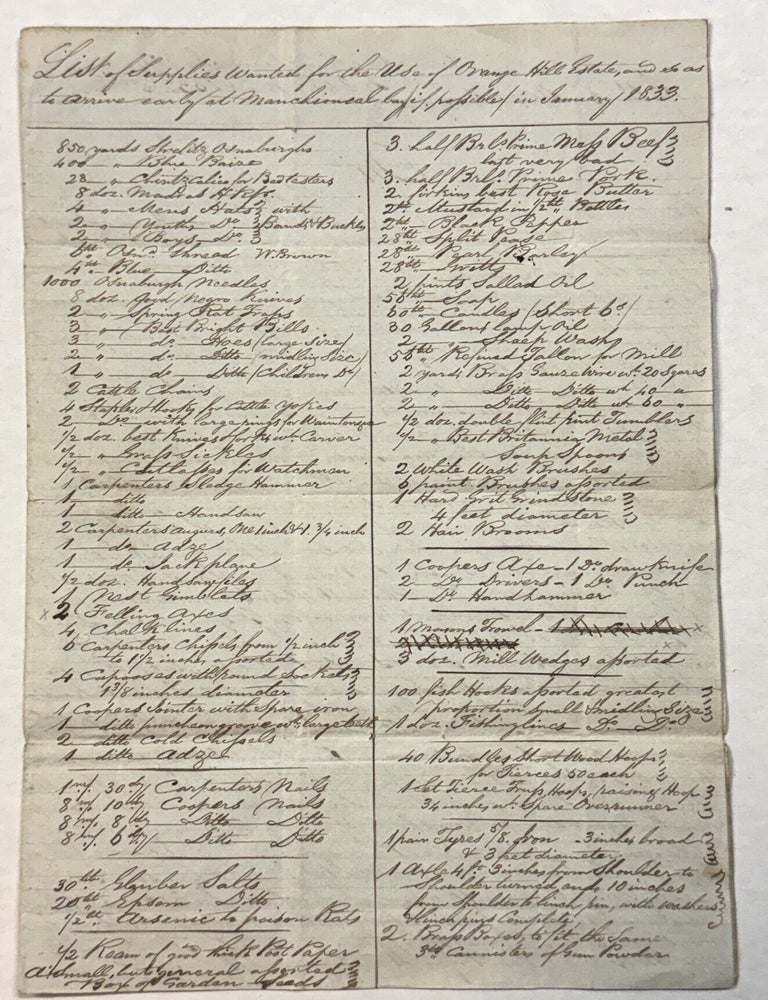 List of Supplies Wanted for the Use of Orange Hill Estate, and so as
to arrive early at Manchioneal by (if possible) in January 1833.
850 yards Strelitz Osnaburghs
400 " Blue Baize
28 " Chintz Calico for Bedtesters
8 doz. Madras Hkfs.
2 " Mens Hats with
2 " Youths Do Bands & Buckles
2 " Boys Do
Thread W. Brown
4 lb Blue Ditto
1000 Osnaburgh Needles
8 doz. Negro Knives
2 " Spring Rat Traps
3 " Best Bright Bills
3 " do Hoes (large Size)
2 " do Ditto (midling Size)
1 " do Ditto (Childrens Do)
2 Cattle Chains
4 Staples & Hooks for Cattle Yokes
2 Do with large rings for Waintongue
1/2 doz. best Knives & forks wth Carver
1/2 " Grass Sickles
1/2 " Cutlasses for Watchman
1 Carpenters Sledge Hammer
1 ditto
1 ditto Handsaw
2 Carpenters augurs, One 1 inch & 1 3/4 inch
1 do adze
1 do Jack plane
1/2 doz. Handsaw files
1 Nest Gimblets
2 Felling Axes
4 Chalk lines
6 Carpenters Chissels from 1/2 inch
to 1 1/2 inches assorted
4 Capooses with round Sockets
1 3/8 inches diameter
1 Coopers Jointer with Spare iron
1 ditto puncheon groove wth large teeth
2 ditto Cold Chissels
1 ditto adze
1 m/. 30 dy/ Carpenters Nails
8 m/. 10 dy/ Coopers Nails
8 m/. 8 dy/ Ditto Ditto
8 m/. 6 dy/ Ditto Ditto
30 lb Glauber Salts
20 lb Epsom Ditto
1/2 lb Arsenic to poison Rats
1/2 Ream of good thick Post Paper
A small, but general assorted
Box of Garden Seeds
3. half Brls. Prime Mess Beef
last very bad
3. half Brls. Prime Pork.
2. firkins best Rose Butter
2 lb Mustard in 1/2 lb Bottles
2 lb Black Pepper
28 lb Split Pease
28 lb Pearl Barley
28 lb
2 pints Sallad Oil
56 lb Soap
50 lb Candles (Short 6s)
30 Gallons Lamp Oil
2 " Sheep Wash
56 lb Refined Tallow for Mill
2 yards Brass Gauze Wire wth 20 Squares
2 " Ditto Ditto wth 40 "
2 " Ditto Ditto wth 60 "
1/2 doz. double flint pint Tumblers
1/2 " Best Britannia Metal
Soup Spoons
2 White Wash Brushes
6 paint Brushes assorted
1 Hard Grit Grind Stone
4 feet diameter
2 Hair Brooms
1 Coopers Axe - 1 Do draw Knife
2 Do Drivers - 1 Do Punch
1 Do Handhammer
1 Masons Trowel - 1
3 doz. Mill Wedges assorted
100 fish Hooks assorted greatest
proportion Small & midling Size
1 doz. Fishing lines Do Do
40 Bundles Short Wood Hoops
for Tierces 50 each
1 Set Tierce Truss Hoops, raising Hoop
3/4 inches, wth Spare Overrunner
1 pair Tyres 5/8 Iron 3 inches broad
& 3 feet diameter
1 Axle 4 ft. 3 inches from Shoulder to
Shoulder turned, ends 10 inches
from Shoulder to linch pin, with washers
& linch pins Complete
2. Boxes, to fit the Same
3 lb Cannisters of Gun Powder